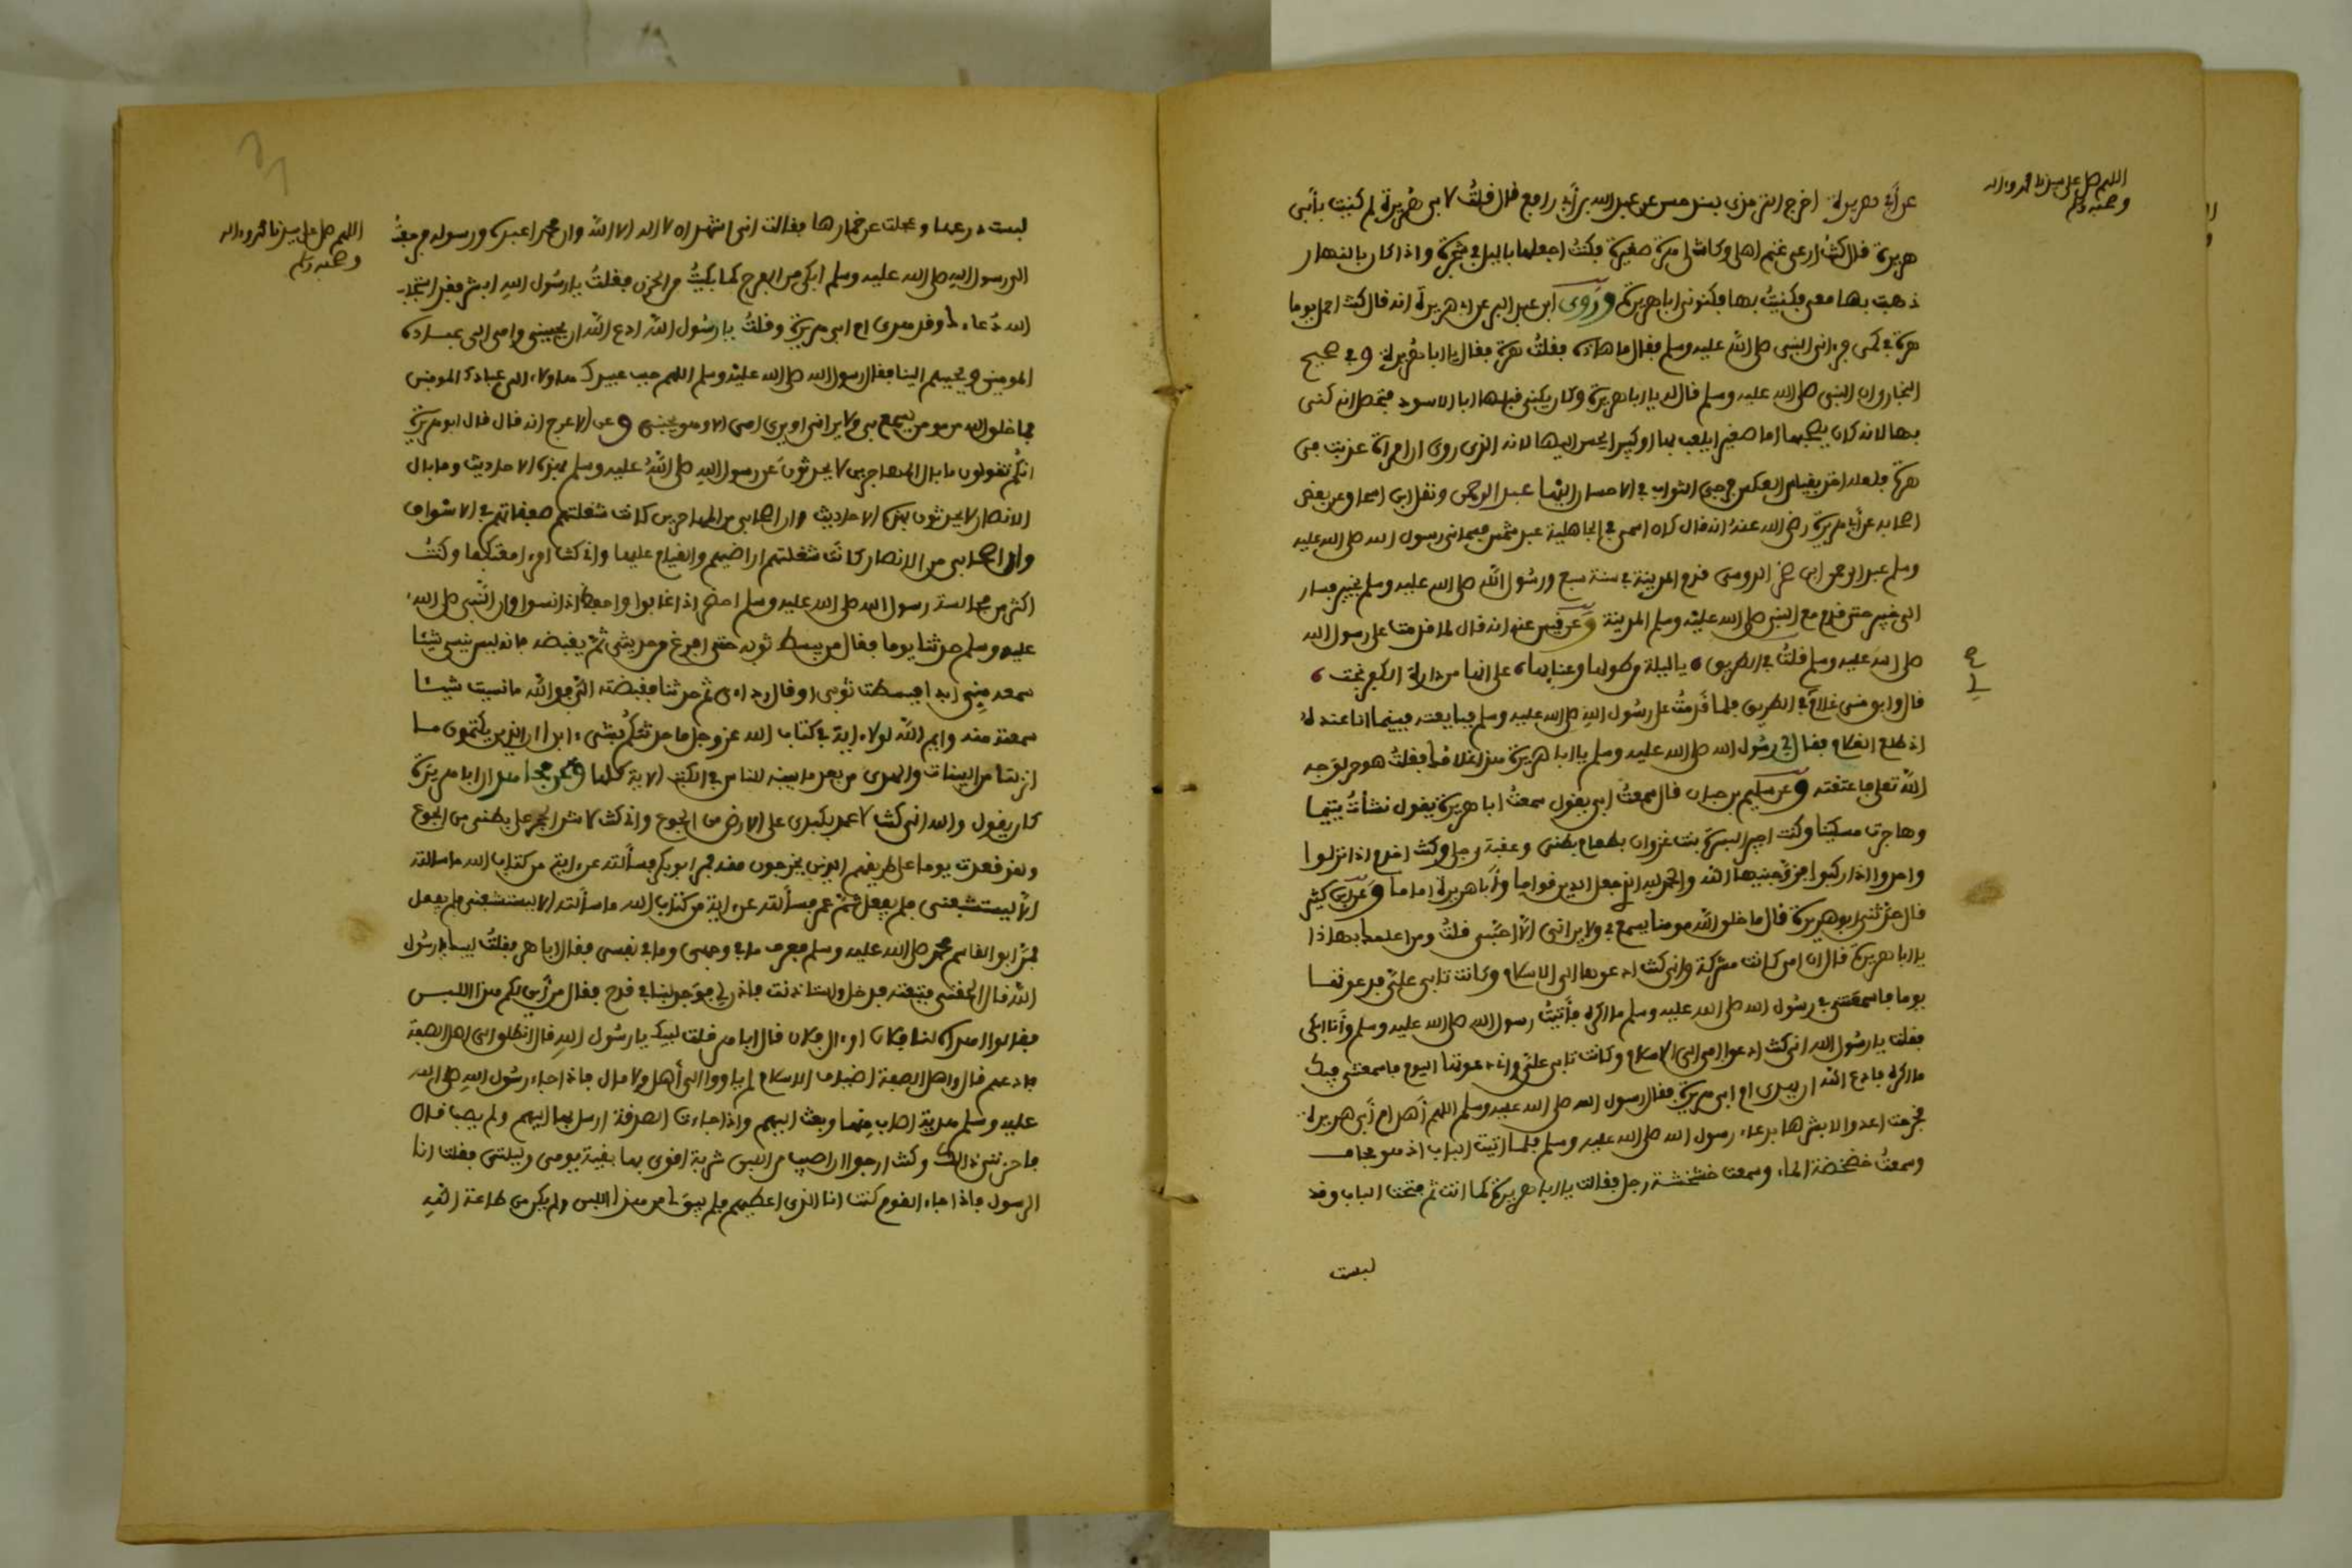 اللهم صل على سيدنا محمد وءاله
وصحبه وسلم
عن أبي هريرة اخرج الترمذي بسند حسن عن عبد الله بن أبي رافع قال قلت لابي هريرة لم كنيت بأبي
هريرة قال كنت ارعى غنم اهلي وكانت لي هرة صغيرة فكنت اجعلها بالليل في شجرة واذا كان بالنهار
ذهبت بها معي فكنيت بها فكنوني ابا هريرة وروى ابن عبد البر عن ابي هريرة انه قال كنت احمل يوما
هرة في كمي فرءاني النبي صلى الله عليه وسلم فقال ما هاذه فقلت هرة فقال يا ابا هريرة وفي صحيح
البخاري ان النبي صلى الله عليه وسلم قال له يا ابا هريرة وكان يكنى قبلها ابا الاسود فتحصل انه كني
بها لانه كان يصحبها اما صغيرا يلعب بها او كبيرا يحسن اليها لانه الذي روى ان امراة عذبت في
هرة فلعله اخذ بقياس العكس في الثواب في الاحسان اليها عبد الرحمن ونقل ابن اسحاق عن بعض
اصحابه عن أبي هريرة رضي الله عنه انه قال كان اسمي في الجاهلية عبد شمس فسماني رسول الله صلى الله عليه
وسلم عبد الرحمن ابن صخر الدوسي قدم المدينة في سنة سبع ورسول الله صلى الله عليه وسلم بخيبر فسار
الى خيبر حتى قدم مع النبي صلى الله عليه وسلم المدينة وعن قيس عنه انه قال لما قدمت على رسول الله
صلى الله عليه وسلم قلت في الطريق يا ليلة من طولها وعنايها على انها من دارة الكفر نجت
قال وابق مني غلام في الطريق فلما قدمت على رسول الله صلى الله عليه وسلم فبايعته فبينما انا عنده
اذ طلع الغلام فقال لي رسول الله صلى الله عليه وسلم يا ابا هريرة هذا غلامك فقلت هو حر لوجه
الله تعلى فاعتقته وعن سليم بن حيان قال سمعت ابي يقول سمعت ابا هريرة يقول نشأت يتيما
وهاجرت مسكينا وكنت اجير البسرة بنت غزوان بطعام بطني وعقبة رجلي وكنت اخدم اذا نزلوا
واحدوا اذا ركبوا فزوجنيها الله والحمد لله الذي جعل الدين قواما وأبا هريرة اماما وعن ابي كثير
قال حدثني ابو هريرة قال ما خلق الله مومنا يسمع بي ولا يراني الا احبني قلت وما علمك بهاذا
يا ابا هريرة قال ان امي كانت مشركة وانى كنت ادعوها الى الاسلام وكانت تابى علي فدعوتها
يوما فاسمعتني في رسول الله صلى الله عليه وسلم ما اكره فأتيت رسول الله صلى الله عليه وسلم وأنا ابكي
فقلت يا رسول الله انى كنت ادعوا امي الى الاسلام وكانت تابى علي واني دعوتها اليوم فاسمعتني فيك
ما اكره فادع الله ان يهدي ام ابي هريرة فقال رسول الله صلى الله عليه وسلم اللهم اهد ام أبي هريرة
فخرجت اعدوا لابشرها بدعاء رسول الله صلى الله عليه وسلم فلما اتيت الباب اذ هو مجاف
وسمعت خضخضة الماء وسمعت خشخشة رجل فقالت يا ابا هريرة كما انت ثم فتحت الباب وقد
لبست
اللهم صل على سيدنا محمد وءاله
وصحبه وسلم
لبست درعها وعجلت عن خمارها فقالت انى اشهد ان لا اله الا الله وان محمدا عبده ورسوله فرجعت
الى رسول الله صلى الله عليه وسلم ابكي من الفرح كما بكيت من الحزن فقلت يا رسول الله ابشر فقد استجاب
الله دعاءك وقد هدى ام ابي هريرة وقلت يا رسول الله ادع الله ان يحببني وامي الى عباده
المومنين ويحببهم الينا فقال رسول الله صلى الله عليه وسلم اللهم حبب عبيدك هذا وامه الى عبادك المومنين
فما خلق الله من مومن يسمع بي ولا يراني او يرى امي الا وهو يحبني وعن الاعرج انه قال قال ابو هريرة
انكم تقولون ما بال المهاجرين لا يحدثون عن رسول الله صلى الله عليه وسلم بهذه الاحاديث وما بال
الانصار لا يحدثون بهذه الاحاديث وان اصحابي من المهاجرين كانت شغلتهم صفقاتهم في الاسواق
وان اصحابي من الانصار كانت شغلتهم اراضيهم والقيام عليها واني كنت امرءا معتكفا وكنت
اكثر من مجالسة رسول الله صلى الله عليه وسلم احضر اذا غابوا واحفظ اذا نسوا وان النبي صلى الله
عليه وسلم حدثنا يوما فقال من يبسط ثوبه حتى افرغ من حديثي ثم يقبضه فانه ليس ينسى شيئا
سمعه مني ابدا فبسطت ثوبي او قال رداءي ثم حدثنا فقبضته الي فوالله ما نسيت شيئا
سمعته منه وايم الله لولا ءاية في كتاب الله عز وجل ما حدثتكم بشيء ابدا ان الذين يكتمون ما
انزلنا من البينات والهدى من بعد ما بيناه للناس في الكتاب الاية كلها وعن مجاهد ان ابا هريرة
كان يقول والله انى كنت لاعمد بكبدي على الارض من الجوع واني كنت لاشد الحجر على بطني من الجوع
ولقد قعدت يوما على طريقهم الذين يخرجون منه فمر ابو بكر فسألته عن ءاية من كتاب الله ما سالته
الا ليستتبعني فلم يفعل ثم عمر فسألته عن ءاية من كتاب الله ما سألته الا ليستتبعني فلم يفعل
فمر ابو القاسم محمد صلى الله عليه وسلم فعرف ما في وجهي وما في نفسي فقال ابا هر فقلت لبيك يا رسول
الله قال الحقني فتبعته فدخل واستاذنت فاذن لي فوجد لبنا في قدح فقال من أين لكم هذا اللبن
فقالوا اهداه لنا فلان او ءال فلان قال ابا هر قلت لبيك يا رسول الله قال انطلق الى اهل الصفة
فادعهم قال واهل الصفة اضياف الاسلام لم ياووا الى أهل ولا مال فاذا جاء رسول الله صلى الله
عليه وسلم هدية اصاب منها وبعث اليهم واذا جاءت الصدقة ارسل بها اليهم ولم يصب قال
فاحزنني ذالك وكنت ارجوا ان اصيب من اللبن شربة اتقوى بها بقية يومي وليلتي فقلت انا
الرسول فاذا جاء القوم كنت انا الذي اعطيهم فلم يبق لي من هذا اللبن ولم يكن من طاعة الله